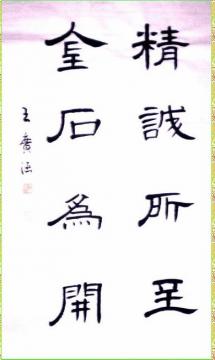 精誠所至
金石為開
王廣漚